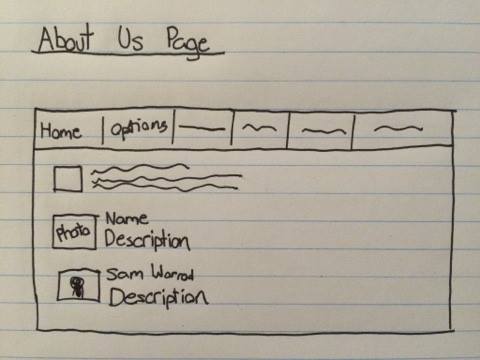 About Us Page
Home Options
Name
Photo
Description
Sam Worrod
Description